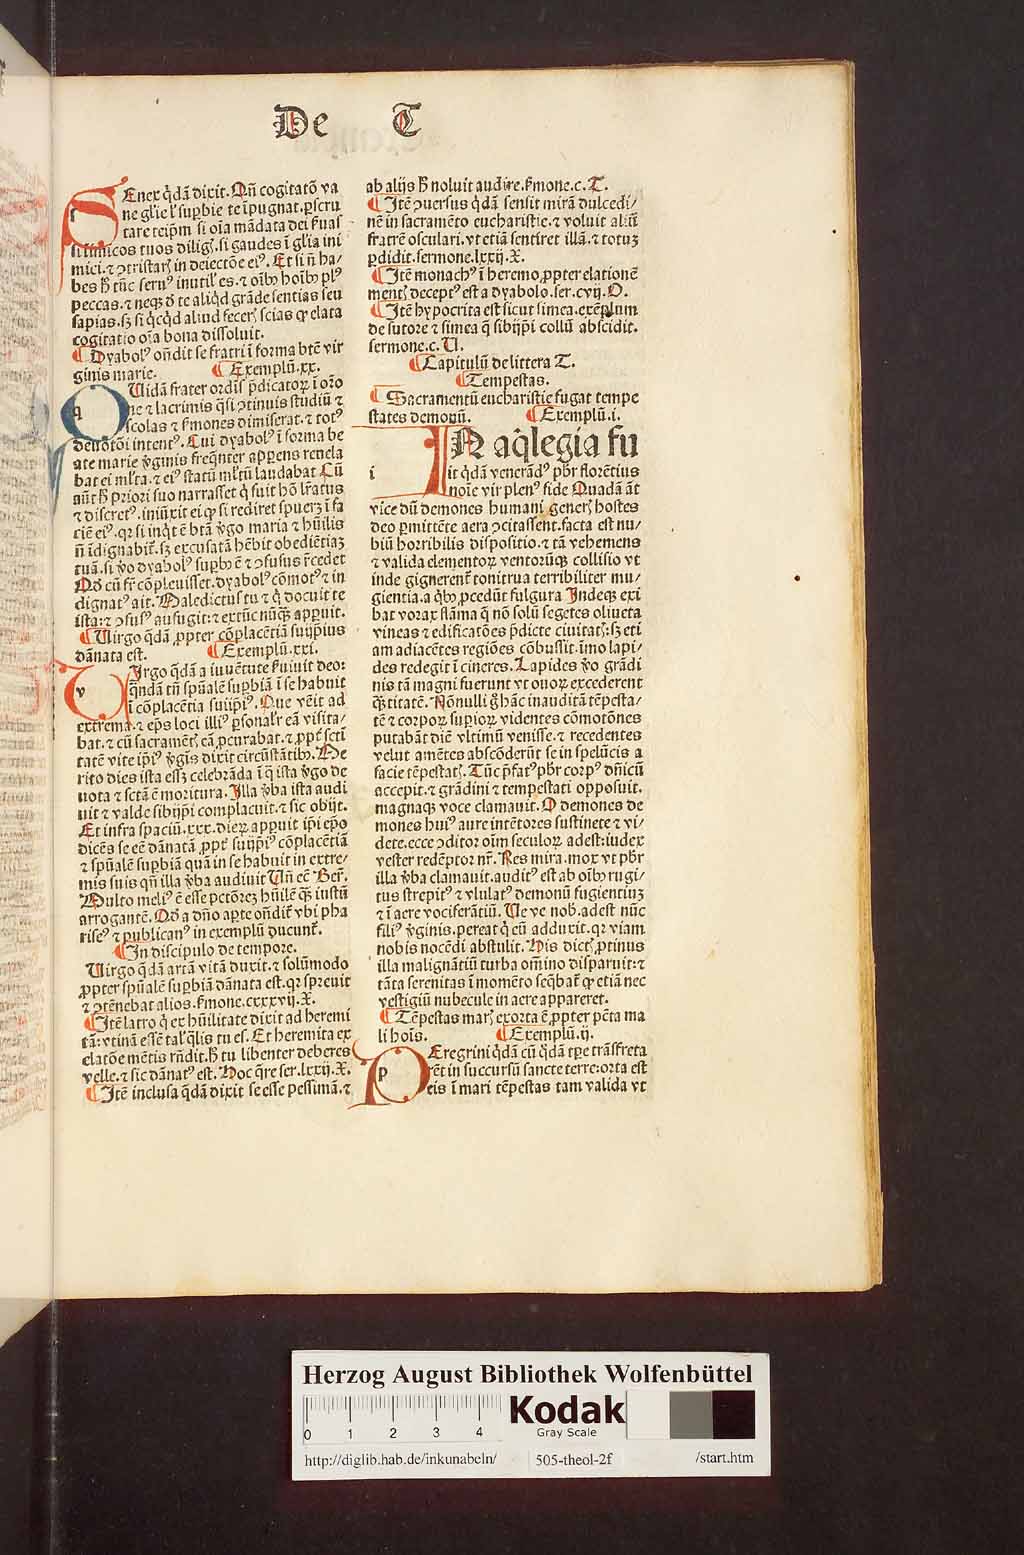 De T
Senex q̄dā dixit. Qn̄ cogitatō va
ne glie l' supbie te īpugnat. pscru
tare teipm̄ si oīa mādata dei ẜuas
si īimicos tuos diligꝭ. si gaudes ī glīa ini
mici. ⁊ ꝯtristarꝭ in deiectōe eiꝰ. Et si n̄ ha/
bes h̄ tūc seruꝰ inutilꝭ es. ⁊ oībꝰ hoībꝰ plꝰ
peccas. ⁊ neqꝫ d̄ te aliq̄d grāde sentias seu
sapias. sꝫ si q̇cq̄d aliud fecerꝭ scias ꝙ elata
cogitatio oīa bona dissoluit.
¶ Dyabolꝰ on̄dit se fratri ī forma btē vir
ginis marie. ¶ Exemplū. xx.
Quidā frater ordīs p̄dicatoꝝ ī orō
ne ⁊ lacrimis q̄si ꝯtinuis studiū ⁊
scolas ⁊ ẜmones dimiserat. ⁊ totꝰ
deuotōi intentꝰ. Cui dyabolꝰ ī forma be
ate marie v̄ginis freq̄nter apparens reuela
bat ei ml'ta. ⁊ eiꝰ statū ml'tū laudabat. Cū
aūt h̄ priori suo narrasset q̇ fuit hō l̄ratus
⁊ discretꝰ. iniūxit ei ꝙ si rediret spuerꝫ ī fa
ciē eiꝰ. qꝛ si inq̇t ē btā v̄go maria ⁊ hūilis
n̄ īdignabit᷑. sꝫ excusatā hēbit obediētiaꝫ
tuā. si v̄o dyabolꝰ supbꝰ ē ⁊ ꝯfusus r̄cedet
Qd̄ cū fr̄ cōpleuisset. dyabolꝰ cōmotꝰ ⁊ in
dignatꝰ ait. Maledictus tu ⁊ q̇ docuit te
ista: ⁊ ꝯfusꝰ aufugit: ⁊ extūc nūqꝫ apparuit.
¶ Uirgo q̄dā ꝓpter cōplacētiā suiip̄ius
dānata est. ¶ Exemplū. xxi.
Uirgo q̄dā a iuuētute ẜuiuit deo:
q̄ndā tn̄ spūalē supbiā ī se habuit
ī cōplacētia suiip̄iꝰ. Que vēit ad
extrema. ⁊ ep̄s loci illiꝰ psonal'r eā visita/
bat. ⁊ cū sacramētꝭ eā pcurabat. ⁊ ꝓpt̄ scti
tatē vite ip̄iꝰ v̄gīs dixit circūstātibꝰ. Me
rito dies ista essꝫ celebrāda ī q̄ ista v̄go de
uota ⁊ sctā ē moritura. Illa v̄ba ista audi
uit ⁊ valde sibiip̄i complacuit. ⁊ sic obijt.
Et infra spaciū. xxx. dieꝝ apparuit ip̄i ep̄o
dicēs se eē dānatā ꝓpt̄ suiip̄iꝰ cōplacētiā
⁊ spūalē supbiā quā in se habuit in extre/
mis suis qn̄ illa v̄ba audiuit Un̄ eē Ber.
Multo meliꝰ ē esse pctōreꝫ hūilē qꝫ iustū
arrogantē. Qd̄ a dn̄o aperte on̄dit᷑ vbi pha
riseꝰ ⁊ publicanꝰ in exemplū ducunt᷑.
¶ In discipulo de tempore.
Uirgo q̄dā artā vitā duxit. ⁊ solūmodo
ꝓpter spūalē supbiā dānata est. qꝛ spreuit
⁊ ꝯtēnebat alios. ẜmone. cxxxvij. X.
¶ Itē latro q̇ ex hūilitate dixit ad heremi
tā: vtinā essē tal' q̄lis tu es. Et heremita ex
elatōe mētis rn̄dit. h̄ tu libenter deberes
velle. ⁊ sic dānatꝰ est. Hoc q̄re ser. lxxij. X.
¶ Itē inclusa q̄dā dixit se esse pessimā. ⁊
ab alijs h̄ noluit audire. ẜmone. c. T.
¶ Itē ꝯuersus q̇dā sensit mirā dulcedi/
nē in sacramēto eucharistie. ⁊ voluit aliū
fratrē osculari. vt etiā sentiret illā. ⁊ totuꝫ
pdidit. sermone. lxxij. X.
¶ Itē monachꝰ ī heremo ꝓpter elationē
mentꝭ deceptꝰ est a dyabolo. ser. cvij. O.
¶ Itē hypocrita est sicut simea. exemplum
de sutore ⁊ simea q̄ sibiip̄i collū abscidit.
sermone. c. U.
¶ Capitulū de littera T.
¶ Tempestas.
¶ Sacramentū eucharistie fugat tempe
states demonū. ¶ Exemplū. i.
IN aq̇legia fu
it q̇dā venerādꝰ pbr̄ florētius
noīe vir plenꝰ fide Quadā āt
vice dū demones humani generꝭ hostes
deo pmittēte aera ꝯcitassent. facta est nu/
biū horribilis dispositio. ⁊ tā vehemens
⁊ valida elementoꝝ ventorūqꝫ collisio vt
inde gignerent᷑ tonitrua terribiliter mu/
gientia. a q̇bꝰ pcedūt fulgura Indeqꝫ exi
bat vorax flāma q̄ nō solū segetes oliueta
vineas ⁊ edificatōes p̄dicte ciuitatꝭ: sꝫ eti
am adiacētes regiōes cōbussit. imo lapi/
des redegit ī cineres. Lapides v̄o grādi
nis tā magni fuerunt vt ouoꝝ excederent
q̄titatē. Nōnulli g̊ hāc inauditā tēpesta/
tē ⁊ corpoꝝ supioꝝ videntes cōmotōnes
putabāt diē vltimū venisse. ⁊ recedentes
velut amētes abscōderūt se in spelūcis a
facie tēpestatꝭ. Tūc p̄fatꝰ pbr̄ corpꝰ dn̄icū
accepit. ⁊ grādini ⁊ tempestati opposuit.
magnaqꝫ voce clamauit. O demones de
mones huiꝰ aure intētores sustinete ⁊ vi/
dete. ecce ꝯditor oīm seculoꝝ adest: iudex
vester redēptor nr̄. Res mira. mox vt pbr̄
illa v̄ba clamauit. auditꝰ est ab oībꝰ rugi/
tus strepitꝰ ⁊ vlulatꝰ demonū fugientiuꝫ
⁊ ī aere vociferātiū. Ue ve nob̄. adest nūc
filiꝰ v̄ginis. pereat q̇ eū adduxit. qꝛ viam
nobis nocēdi abstulit. His dictꝭ ꝓtinus
illa malignātiū turba om̄ino disparuit: ⁊
tāta serenitas ī momēto seq̄bat᷑ ꝙ etiā nec
vestigiū nubecule in aere appareret.
¶ Tēpestas marꝭ exorta ē ꝓpter pēta ma
li hoīs. ¶ Exemplū. ij.
Peregrini q̇dā cū q̇dā tpe trāsfreta
rēt in succursū sancte terre: orta est
eis ī mari tēpestas tam valida vt
Herzog August Bibliothek Wolfenbüttel
0 1 2 3 4
Kodak
Gray Scale
http://diglib.hab.de/inkunabeln/ 505-theol-2f /start.htm